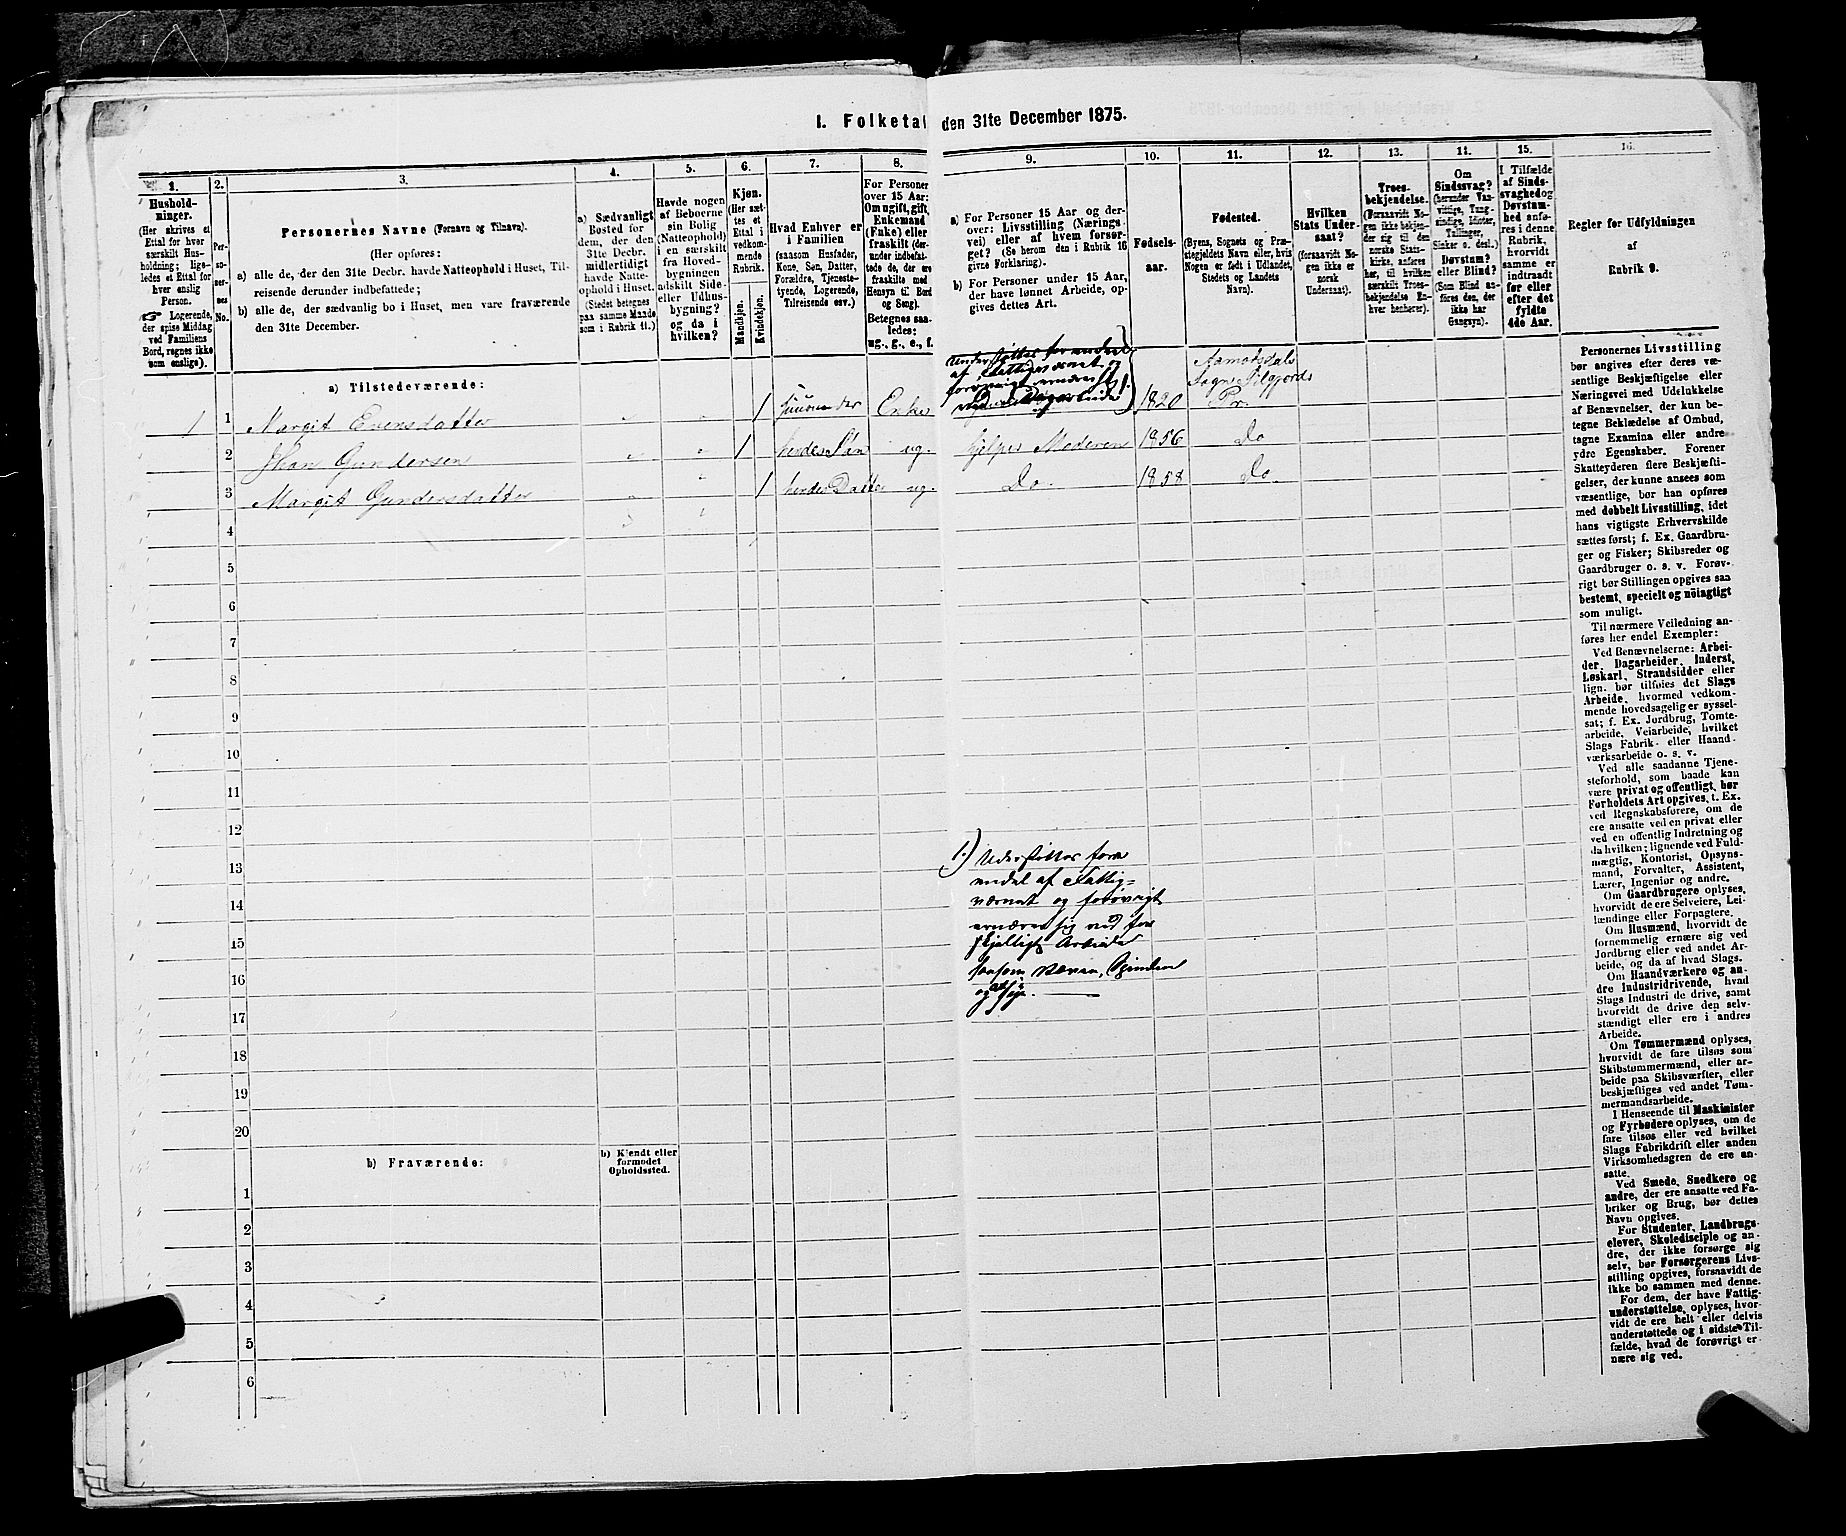 I. Folketal den 31te December 1875.
1.
Hushold-
ninger.
(Her skrives et
Ettal for hver
særskilt Hus-
holdning; lige-
ledes et Ettal for
hver enslig
Person.
Logerende,
der spise Middag
ved Familiens
Bord, regnes ikke
som enslige).
2.
Per-
so-
ner-
nes
No.
3.
Personernes Navne (Fornavn og Tilnavn).
(Her opføres:
a) alle de, der den 31te Decbr. havde Natteophold i Huset, Til-
reisende derunder indbefattede;
b) alle de, der sædvanlig bo i Huset, men vare fraværende
den 31te December.
4.
a) Sædvanligt
Bosted for
dem, der den
31te Decbr.
midlertidigt
havde Natte-
ophold i Huset.
(Stedet betegnes
paa samme Maade
som i Rubrik 11.)
5.
Havde nogen
af Beboerne
sin Bolig
(Natteophold)
i en særskilt
fra Hoved-
bygningen
adskilt Side-
eller Udhus-
bygning?
og da i
hvilken?
6.
Kjøn.
(Her sæt-
tes et
Ettal i
vedkom-
mende
Rubrik.
Mandkjøn.
Kvindekjøn.
7.
Hvad Enhver er
i Familien
(saasom Husfader,
Kone, Søn, Datter,
Forældre, Tjeneste-
tyende, Logerende,
Tilreisende osv.)
8.
For Personer
over 15 Aar:
Om ugift, gift,
Enkemand
(Enke) eller
fraskilt (der-
under indbefat-
tede de, der ere
fraskilte med
Hensyn til Bord
og Seng).
Betegnes saa-
ledes:
ug., g., e., f.
9.
a) For Personer 15 Aar og der-
over: Livsstilling (Nærings-
vei) eller af hvem forsør-
get? (Se herom den i Rubrik 16
givne Forklaring).
b) For Personer under 15 Aar,
der have lønnet Arbeide, op-
gives dettes Art.
10.
Fødsels-
aar.
11.
Fødested.
(Byens, Sognets og Præ-
stegjeldets Navn eller, hvis
Nogen er født i Udlandet,
Stedets og Landets
Navn).
12.
Hvilken
Stats Under-
saat?
(forsaavidt No-
gen ikke er
norsk
Undersaat).
13.
Troes-
bekjendelse.
(Forsaavidt No-
gen ikke bekjen-
der sig til den
norske Stats-
kirke, anføres
her, til hvilken
særskilt Troes-
bekjendelse En-
hver henhører).
14.
Om
Sindssvag?
(herunder Van-
vittige, Tung-
sindige, Idioter,
Tullinger,
Sinker o. desl.)
Døvstum?
eller Blind?
(Som Blind an-
føres den, der
ikke har
Gangsyn).
15.
I Tilfælde
af Sinds-
svaghed og
Døvstum-
hed anfø-
res i denne
Rubrik,
hvorvidt
samme er
indtraadt
før eller
efter det
fyldte
4de Aar.
16.
Regler for Udfyldningen
af
Rubrik 9.
a) Tilstedeværende:
Understøttes for en deel
af Fattigvæsnet og
forøvrigt ernærer sig
1.
Aamotsdals
Sogn Silgjords
Pr.
1 1 Margit Evensdatter 1 huusmoder Enke 1820
2 Jhan Gundersen 1 hendes Søn ug. hjelper Moderen 1856 Do
3 Margit Gundersdatter 1 hendes Datter ug. Do. 1858 Do.
4
5
6
7
8
9
10
11
12
13
14
15
16
17
18
19
20
1.) Understøttes for
endel af Fattig=
væsnet og forøvrigt
ernærer sig ved for
skjelligt Arbeide
saasom Væven, Spinden
og at sye.
b) Fraværende:
b) Kjendt eller
formodet
Opholdssted.
1
2
3
4
5
6
Personernes Livsstilling
bør angives efter deres væ-
sentlige Beskjæftigelse eller
Næringsvei med Udelukkelse
af Benævnelser, der kun be-
tegne Beklædelse af Ombud,
tagne Examina eller andre
ydre Egenskaber. Forener
Skatteyderen flere Beskjæfti-
gelser, der kunne ansees som
væsentlige, bør han opføres
med dobbelt Livsstilling, idet
hans vigtigste Erhvervskilde
sættes først; f. Ex. Gaardbru-
ger og Fisker; Skibsreder og
Gaardbruger o. s. v. Forøv-
rigt bør Stillingen opgives saa
bestemt, specielt og nøiagtigt
som muligt.
Til nærmere Veiledning an-
føres her endel Exempler:
Ved Benævnelserne: Arbei-
der, Dagarbeider, Inderst,
Løskarl, Strandsidder eller
lign. bør tilføies det Slags
Arbeide, hvormed vedkom-
mende hovedsagelig er syssel-
sat; f. Ex. Jordbrug, Tomte-
arbeide, Veiarbeide, hvilket
Slags Fabrik- eller Haand-
værksarbeide o. s. v.
Ved alle saadanne Tjene-
steforhold, som baade kan
være privat og offentligt, bør
Forholdets Art opgives, t. Ex.
ved Regnskabsførere, om de
ere ansatte ved en privat eller
ved en offentlig Indretning og
da hvilken; lignende ved Fuld-
mægtig, Kontorist, Opsyns-
mand, Forvalter, Assistent,
Lærer, Ingeniør og andre.
Om Gaardbrugere oplyses,
hvorvidt de ere Selveiere, Lei-
lændinge eller Forpagtere.
Om Husmænd, hvorvidt de
fornemmelig ernære sig ved
Jordbrug eller ved andet Ar-
beide, og da af hvad Slags.
Om Haandværkere og an-
dre Industridrivende, hvad
Slags Industri de drive, samt
hvorvidt de drive den selv-
stændigt eller ere i andres
Arbeide.
Om Tømmermænd oplyses,
hvorvidt de fare tilsøs som
Skibstømmermænd, eller ar-
beide paa Skibsværfter, eller
beskjæftiges ved andet Tøm-
mermandsarbeide.
I Henseende til Maskinister
og Fyrbødere oplyses, om de
fare tilsøs eller ved hvilket
Slags Fabrikdrift eller anden
Virksomhedsgren de ere an-
satte.
Ved Smede, Snedkere og
andre, der ere ansatte ved Fa-
briker og Brug, bør dettes
Navn opgives.
For Studenter, Landbrugs-
elever, Skoledisciple og an-
dre, der ikke forsørge sig
selv, bør Forsørgerens Livs-
stilling opgives, forsaavidt de
ikke bo sammen med denne.
For dem, der have Fattig-
understøttelse, oplyses, hvor-
vidt de ere helt eller delvis
understøttede og i sidste Til-
fælde, hvad de forøvrigt er-
nære sig ved.